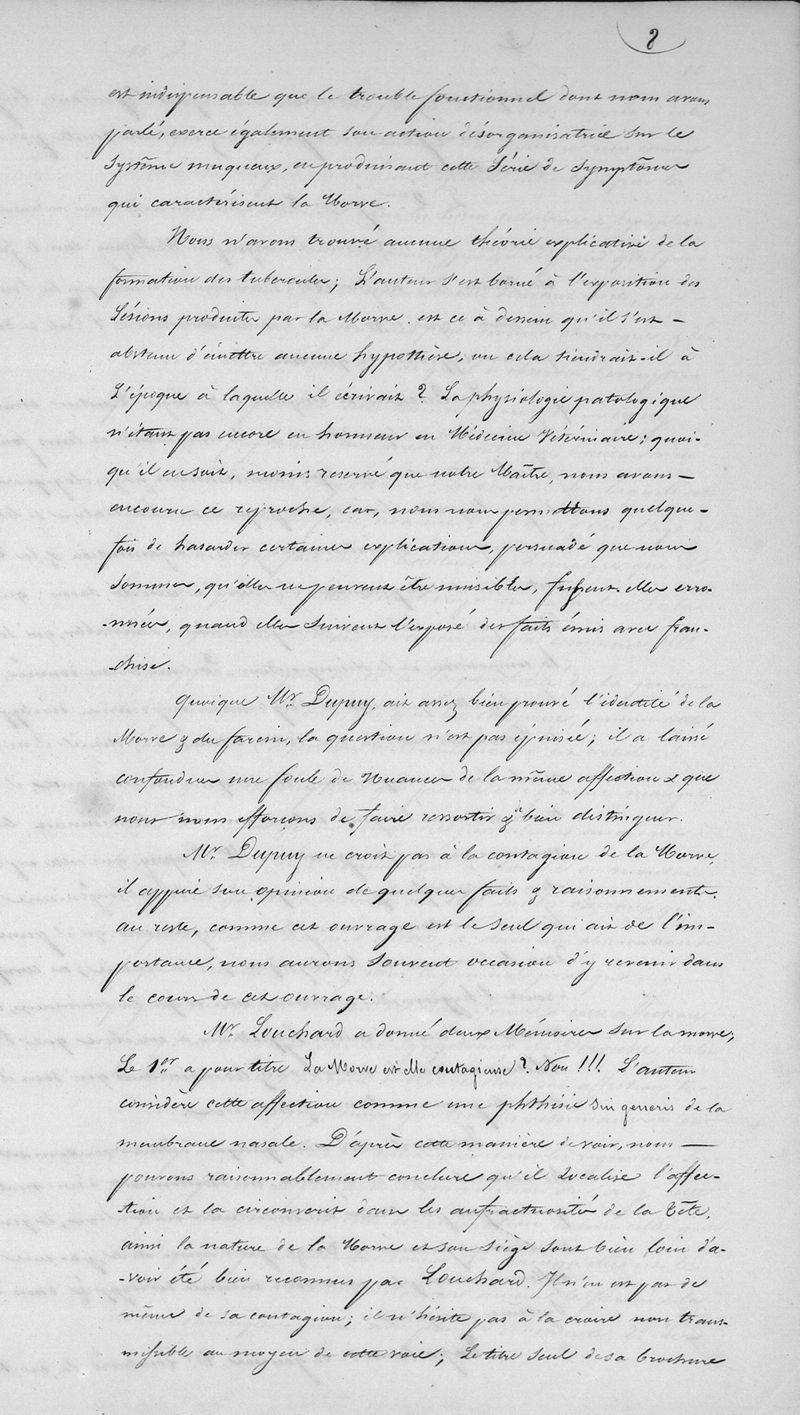 8
est indispensable que le trouble fonctionnel dont nous avons
parlé, exerce également son action désorganisatrice sur le
Systême muqueux, en produisant cette Série de Symptômes
qui caractérisent la Morve.
Nous n'avons trouvé aucune théorie explicative de la
formation des tubercules; L'auteur s'est borné à l'exposition des
Lésions produites par la Morve. est ce à dessein qu'il s'est —
abstenu d'émettre aucune hypothèse, ou cela tiendrait-il à
L'époque à laquelle il écrivait? La physiologie patologique
n'étant pas encore en honneur en Médecine Vétérinaire; quoi-
qu'il en soit, moins reservé que notre Maître, nous avons —
encouru ce reproche, car, nous nous permettons quelque-
fois de hasarder certaines explications, persuadé que nous
Sommes, qu'elles ne peuvent être nuisibles, fussent-elles erro-
-nnées, quand elles suivent l'exposé des faits émis avec fran-
-chise.
Quoique Mr. Dupuy, ait assez bien prouvé l'identité de la
Morve & du farcin, la question n'est pas épuisée; il a laissé
confondues une foule de Nuances de la même affection & que
nous nous efforçons de faire ressortir & bien distinguer.
Mr. Dupuy ne croit pas à la contagion de la Morve,
il appuie son opinion de quelques faits & raisonnements.
au reste, comme cet ouvrage est le seul qui ait de l'im-
portance, nous aurons souvent occasion d'y revenir dans
le cours de cet ouvrage.
Mr. Louchard a donné deux Mémoires sur la morve;
Le 1er a pour titre La Morve est elle contagieuse? Non!!! L'auteur
considère cette affection comme une phthisie sui generis de la
membrane nasale. D'après cette manière de voir, nous —
pouvons raisonnablement conclure qu'il Localise l'affec-
tion et la circonscrit dans les anfractuosités de la Tête,
ainsi la nature de la Morve et son siège sont bien loin d'a-
-voir été bien reconnus par Louchard. Il n'en est pas de
même de sa contagion; il n'hésite pas à la croire non trans-
missible au moyen de cette voie; Le titre seul de sa brochure